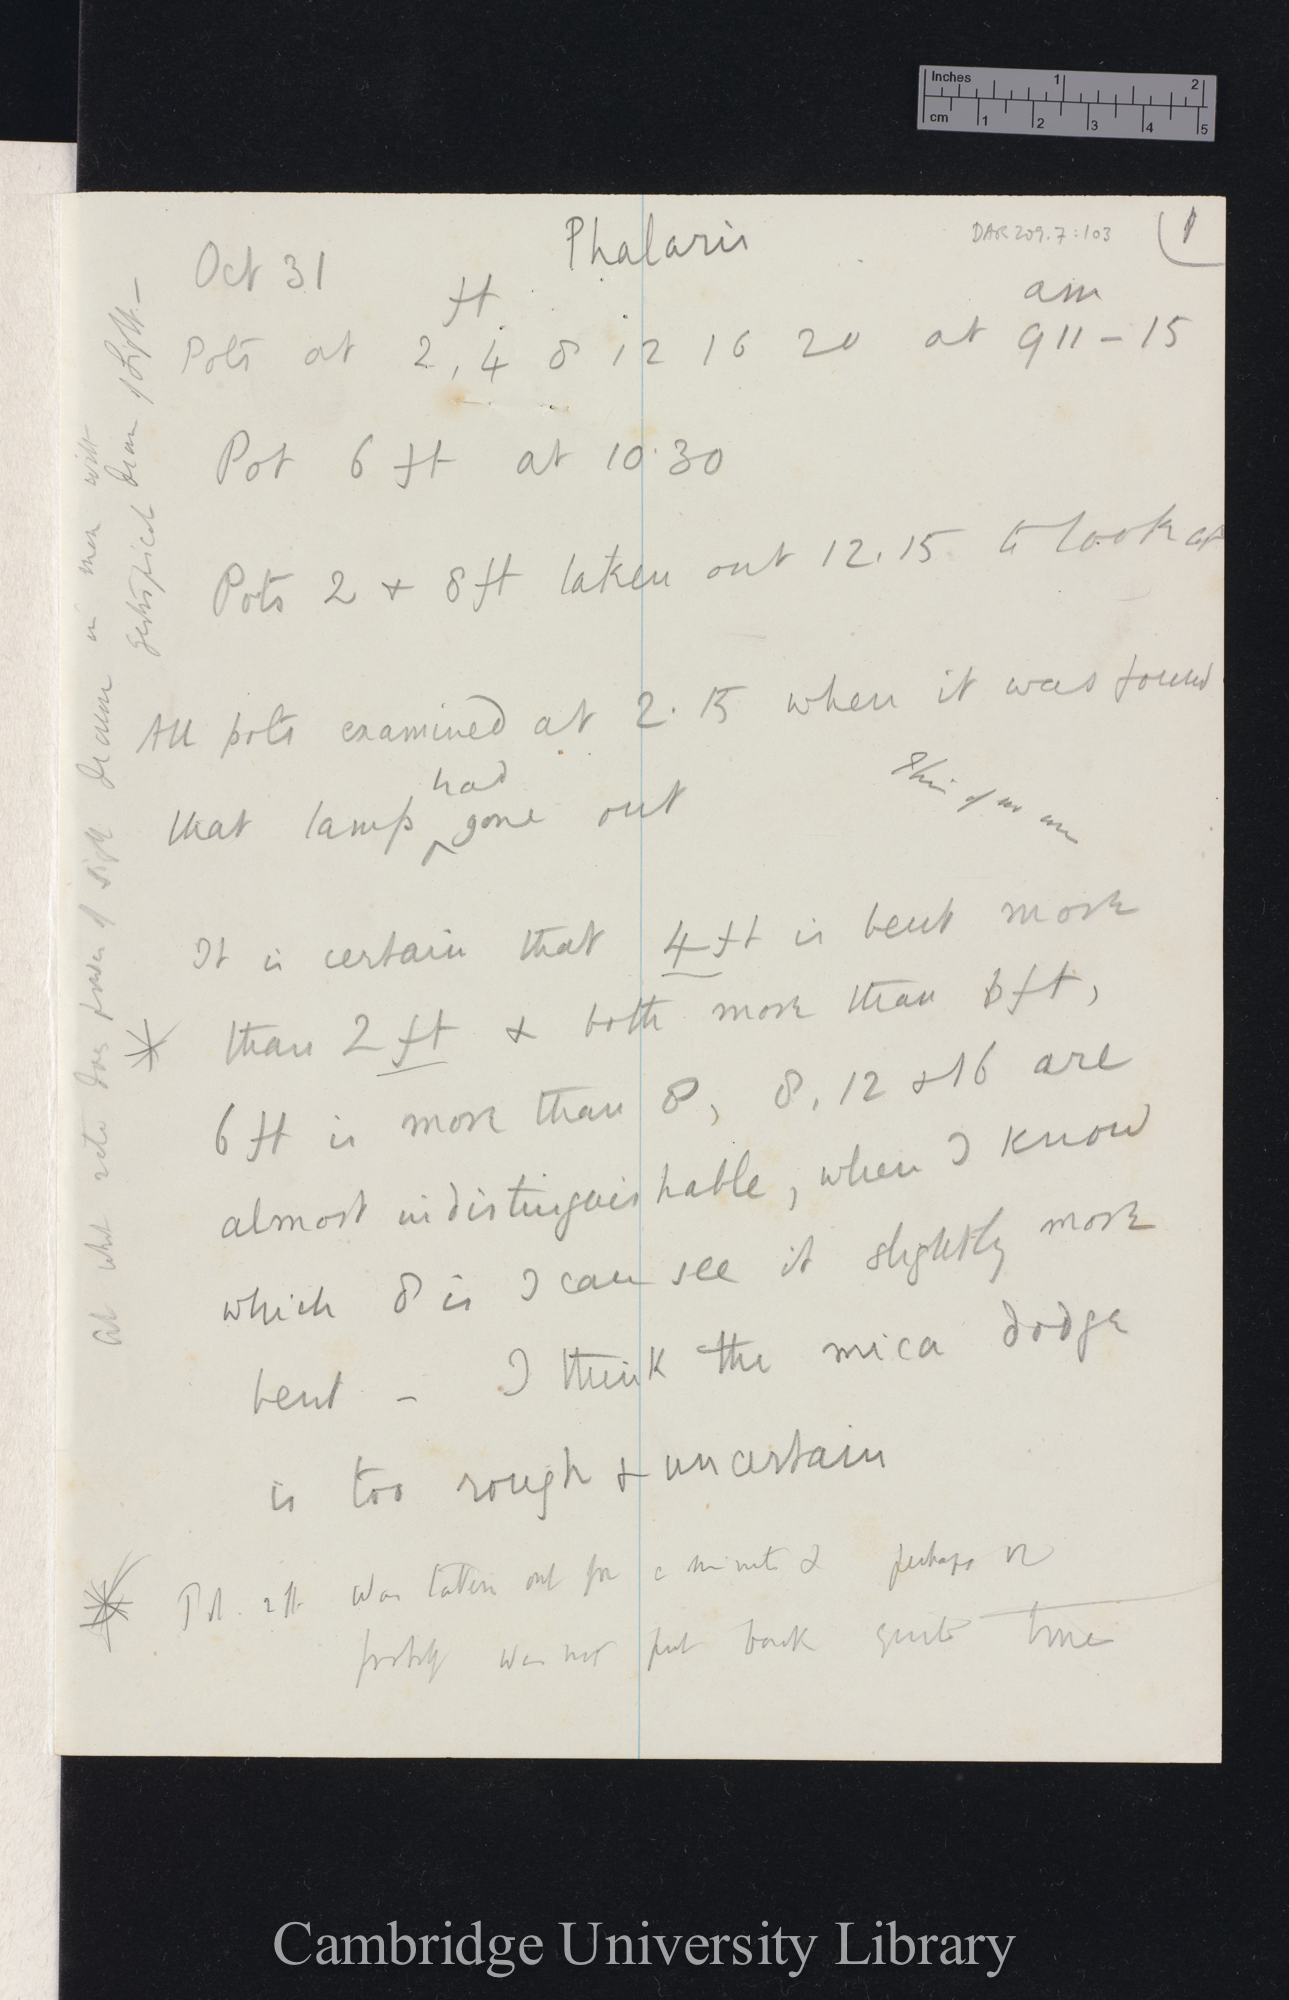 Inches 1 2
cm 1 2 3 4 5
Phalaris
DAR 209.7:103
1
Oct 31
ft
am
Pots at 2, 4 8 12 16 20 at 9 11-15
Pot 6 ft at 10.30
Pots 2 + 8 ft taken out 12.15 to look at
All pots examined at 2.15 when it was found
had
that lamp ^ gone out
It is certain that 4 ft is bent more
than 2 ft + both more than 6 ft,
6 ft is more than 8, 8, 12 + 16 are
almost indistinguishable, when I know
which 8 is I can see it slightly more
bent – I think the mica dodge
is too rough + uncertain
Pot. 2 ft was taken out for a minute & perhaps
was not put back quite true
At what rate does power of light decrease in man with
of Light –
Cambridge University Library